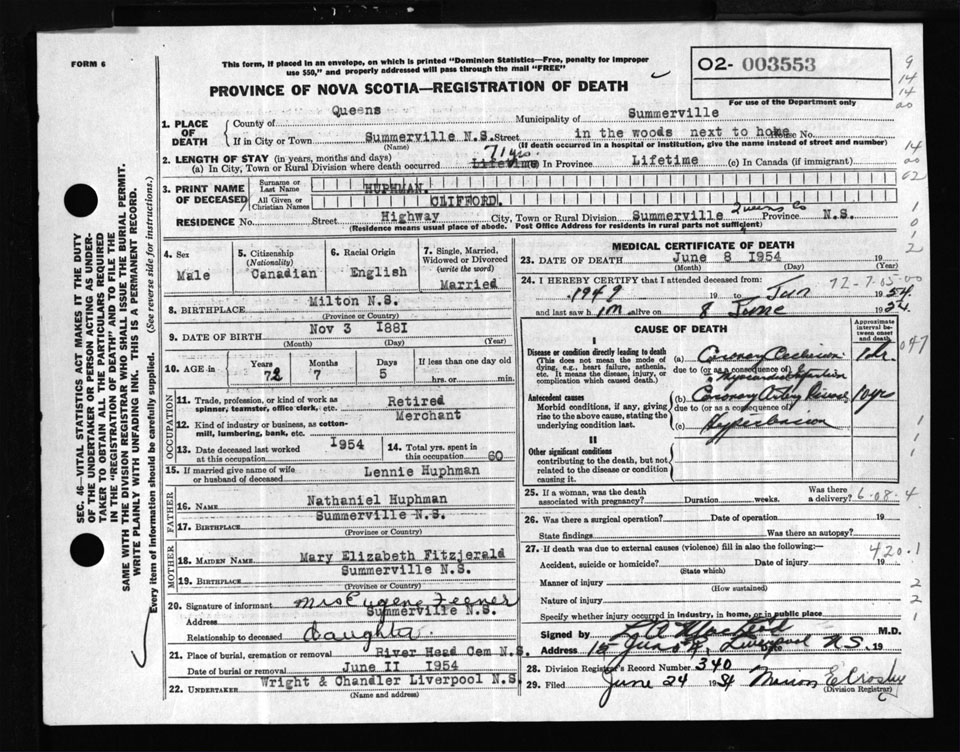 FORM 6
This form, if placed in an envelope, on which is printed "Dominion Statistics—Free, penalty for improper
use $50," and properly addressed will pass through the mail "FREE"
O2- 003553
For use of the Department only
PROVINCE OF NOVA SCOTIA—REGISTRATION OF DEATH
1. PLACE OF DEATH
County of Queens Municipality of Summerville
If in City or Town Summerville N.S. Street in the woods next to home House No.
(Name) (If death occurred in a hospital or institution, give the name instead of street and number)
2. LENGTH OF STAY (in years, months and days)
(a) In City, Town or Rural Division where death occurred Lifetime 71 yrs. In Province Lifetime (c) In Canada (if immigrant)
3. PRINT NAME OF DECEASED
Surname or Last Name HUPHMAN.
All Given or Christian Names CLIFFORD.
RESIDENCE No. Street Highway City, Town or Rural Division Summerville Queens Co Province N.S.
(Residence means usual place of abode. Post Office Address for residents in rural parts not sufficient)
4. Sex Male
5. Citizenship (Nationality) Canadian
6. Racial Origin English
7. Single, Married, Widowed or Divorced (write the word) Married
8. BIRTHPLACE Milton N.S.
(Province or Country)
9. DATE OF BIRTH Nov 3 I88I
(Month) (Day) (Year)
10. AGE in Years 72 Months 7 Days 5 If less than one day old
hrs. or min.
OCCUPATION
11. Trade, profession, or kind of work as spinner, teamster, office clerk, etc. Retired
12. Kind of industry or business, as cotton-mill, lumbering, bank, etc. Merchant
13. Date deceased last worked at this occupation I954
14. Total yrs. spent in this occupation 60
15. If married give name of wife or husband of deceased Lennie Huphman
FATHER
16. NAME Nathaniel Huphman
17. BIRTHPLACE Summerville N.S.
(Province or Country)
MOTHER
18. MAIDEN NAME Mary Elizabeth Fitzjerald
19. BIRTHPLACE Summerville N.S.
(Province or Country)
20. Signature of informant Mrs Eugene
Address Summerville N.S.
Relationship to deceased daughter.
21. Place of burial, cremation or removal River Head Cem N.S.
Date of burial or removal June II I954
22. UNDERTAKER Wright & Chandler Liverpool N.S.
(Name and address)
MEDICAL CERTIFICATE OF DEATH
23. DATE OF DEATH June 8 I954
(Month) (Day) (Year)
24. I HEREBY CERTIFY that I attended deceased from:
72-7-05-00
1949 19 to Jun 1954
and last saw h im alive on 8 June 1954
CAUSE OF DEATH
Approximate interval between onset and death
I
Disease or condition directly leading to death
(This does not mean the mode of dying, e.g., heart failure, asthenia, etc. It means the disease, injury, or complication which caused death.)
(a) Coronary Occlusion 1 hr.
due to (or as a consequence of)
Myocardial Infarction
Antecedent causes
Morbid conditions, if any, giving rise to the above cause, stating the underlying condition last.
(b) Coronary Artery Disease 10 yrs
due to (or as a consequence of)
(c) Hypertension
II
Other significant conditions
contributing to the death, but not related to the disease or condition causing it.
25. If a woman, was the death associated with pregnancy? Duration weeks. Was there a delivery? 6-08-4
26. Was there a surgical operation? Date of operation 19
State findings Was there an autopsy?
27. If death was due to external causes (violence) fill in also the following:— 420.1
Accident, suicide or homicide? Date of injury 19
(State which)
Manner of injury
(How sustained)
Nature of injury
Specify whether injury occurred in industry, in home, or in public place
Signed by M.D.
Address Liverpool N.S. 19
28. Division Registrar's Record Number 340
29. Filed June 24 1954 Marion E Crosby
(Division Registrar)
SEC. 46—VITAL STATISTICS ACT MAKES IT THE DUTY
OF THE UNDERTAKER OR PERSON ACTING AS UNDER-
TAKER TO OBTAIN ALL THE PARTICULARS REQUIRED
IN THE "REGISTRATION OF DEATH" AND TO FILE THE
SAME WITH THE DIVISION REGISTRAR WHO SHALL ISSUE THE BURIAL PERMIT.
WRITE PLAINLY WITH UNFADING INK. THIS IS A PERMANENT RECORD.
Every item of information should be carefully supplied. (See reverse side for instructions.)
9
14
14
00
14
00
02
1
0
1
2
047
1
1
1
2
2
1